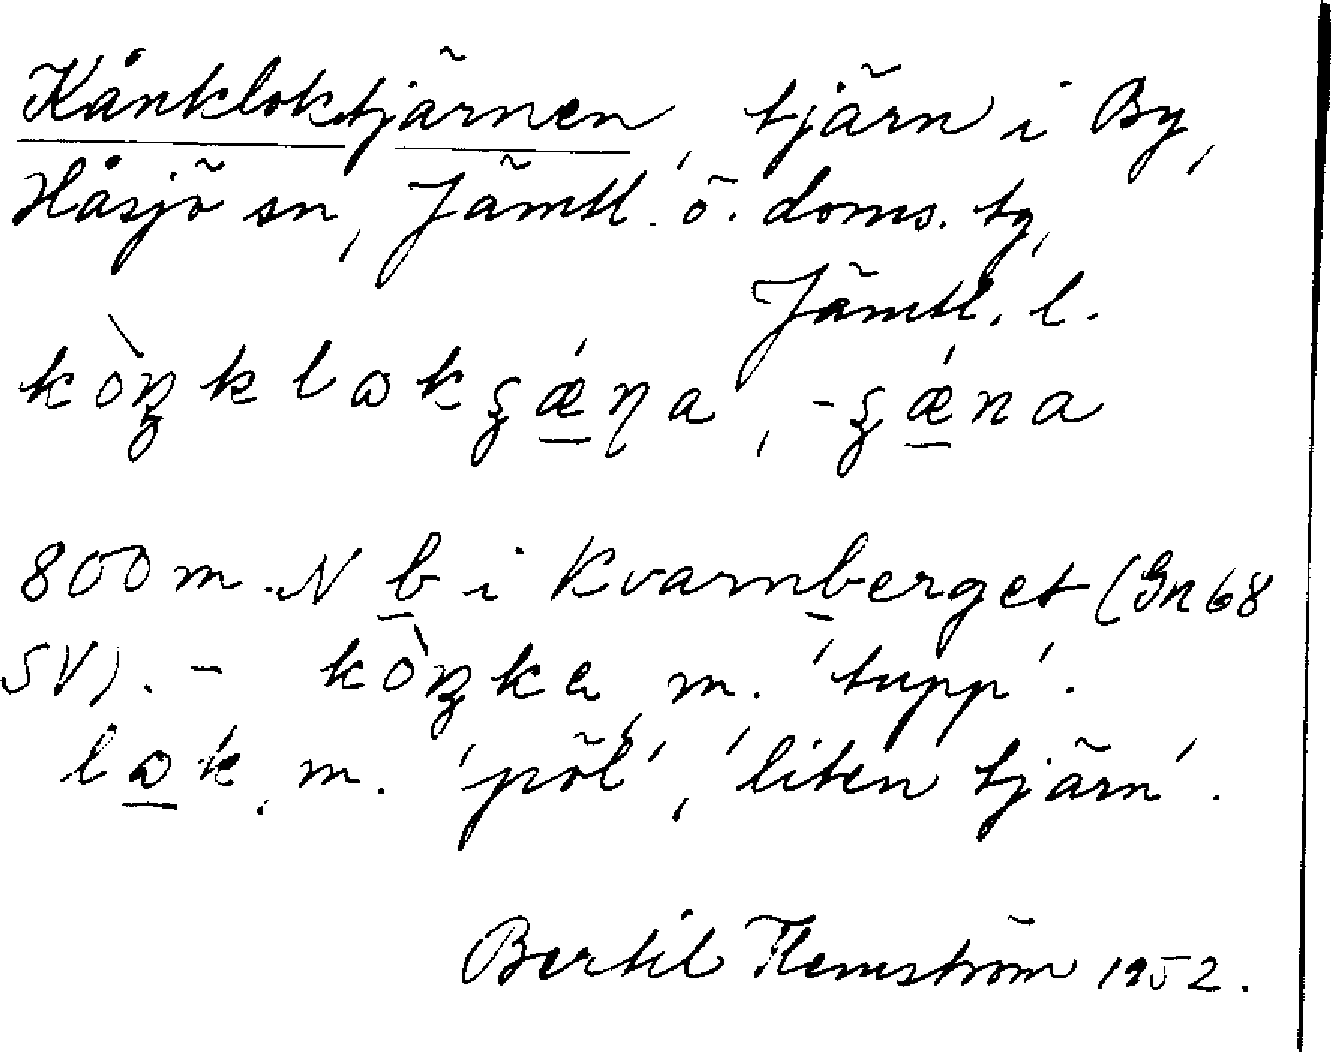 Kånkloktjärnen, tjärn i By,
Håsjö sn, Jämtl. ö. doms. tg,
Jämtl. l.
kòŋklɷkʂǽɳa, -ʂǽna
800 m. N b i Kvarnberget (Gn 68
SV). - kòŋka, m. 'tupp'.
lɷk, m. 'pöl', 'liten tjärn'.
Bertil Flemström 1952.